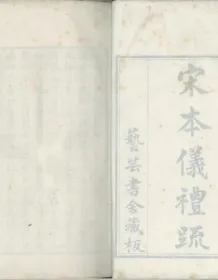 宋本儀禮疏
藝芸書舍藏板